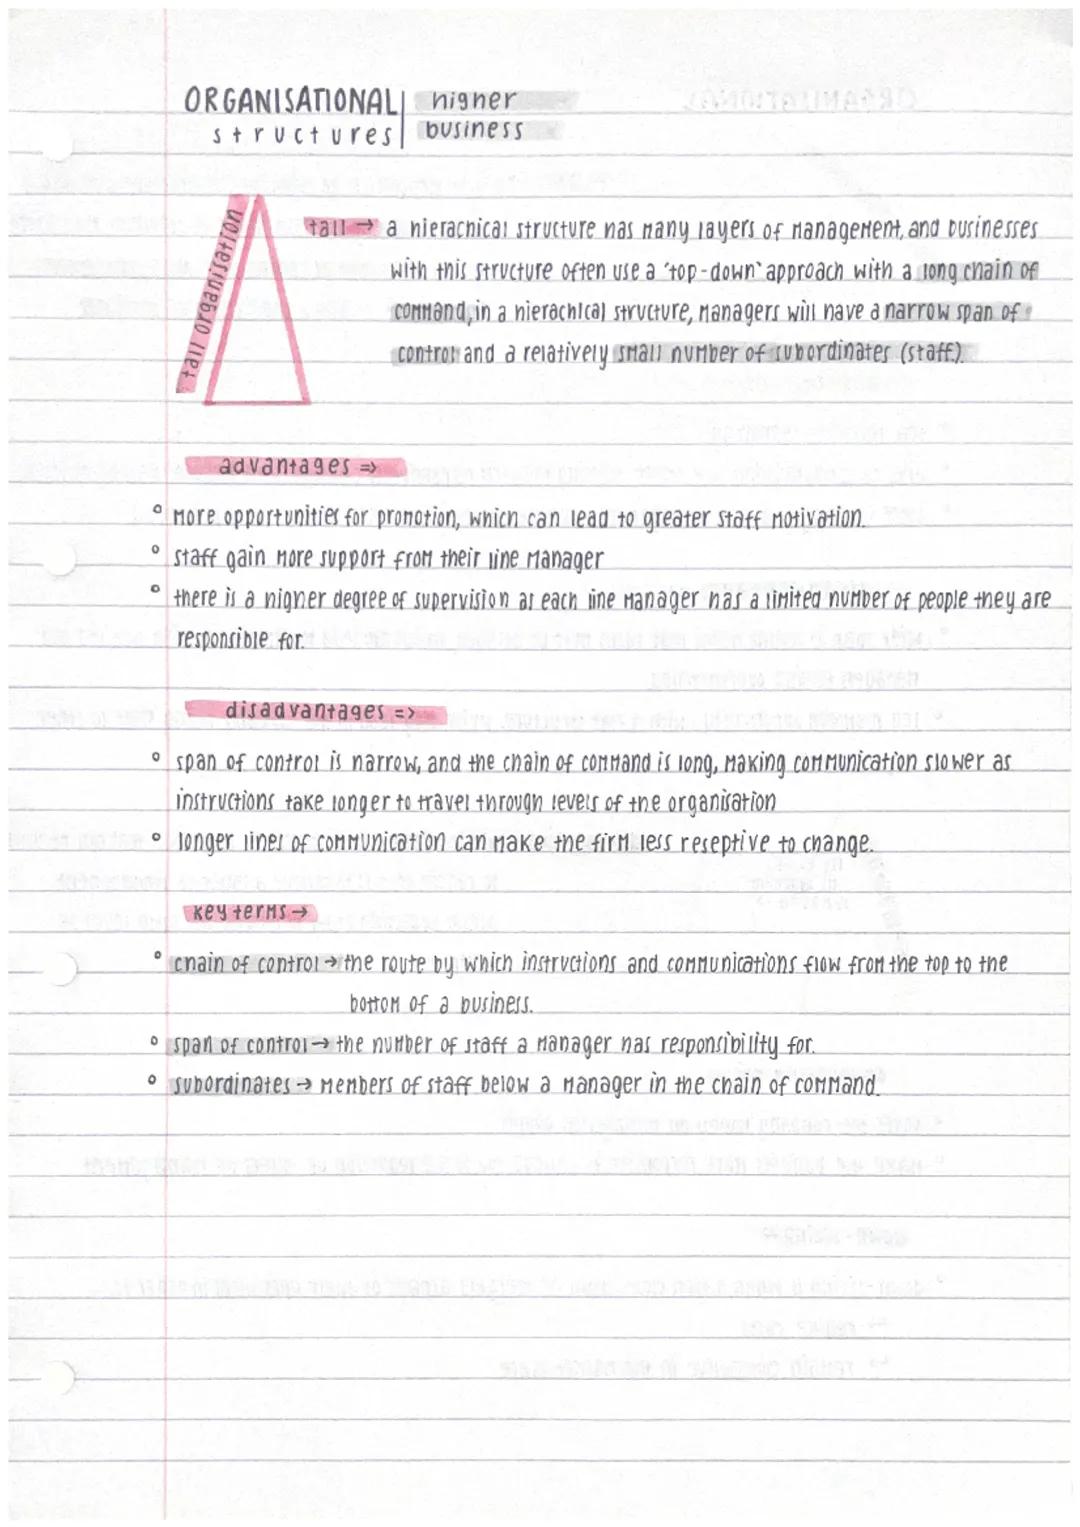 ORGANISATIONAL
structures
higher
business
tall organisation
tall → a hierachical structure has many layers of management, and businesses
with this structure often use a 'top-down' approach with a long chain of
command, in a hierachical structure, managers will have a narrow span of
control and a relatively small number of subordinates (staff).
advantages =>
° more opportunities for promotion, which can lead to greater staff motivation.
° staff gain more support from their line manager
° there is a higher degree of supervision as each line manager has a limited number of people they are
responsible for.
disadvantages =>
° span of control is narrow, and the chain of command is long, making communication slower as
instructions take longer to travel through levels of the organisation
° longer lines of communication can make the firm less reseptive to change.
key terms →
° chain of control → the route by which instructions and communications flow from the top to the
bottom of a business.
° span of control → the number of staff a manager has responsibility for.
° subordinates → members of staff below a manager in the chain of command.